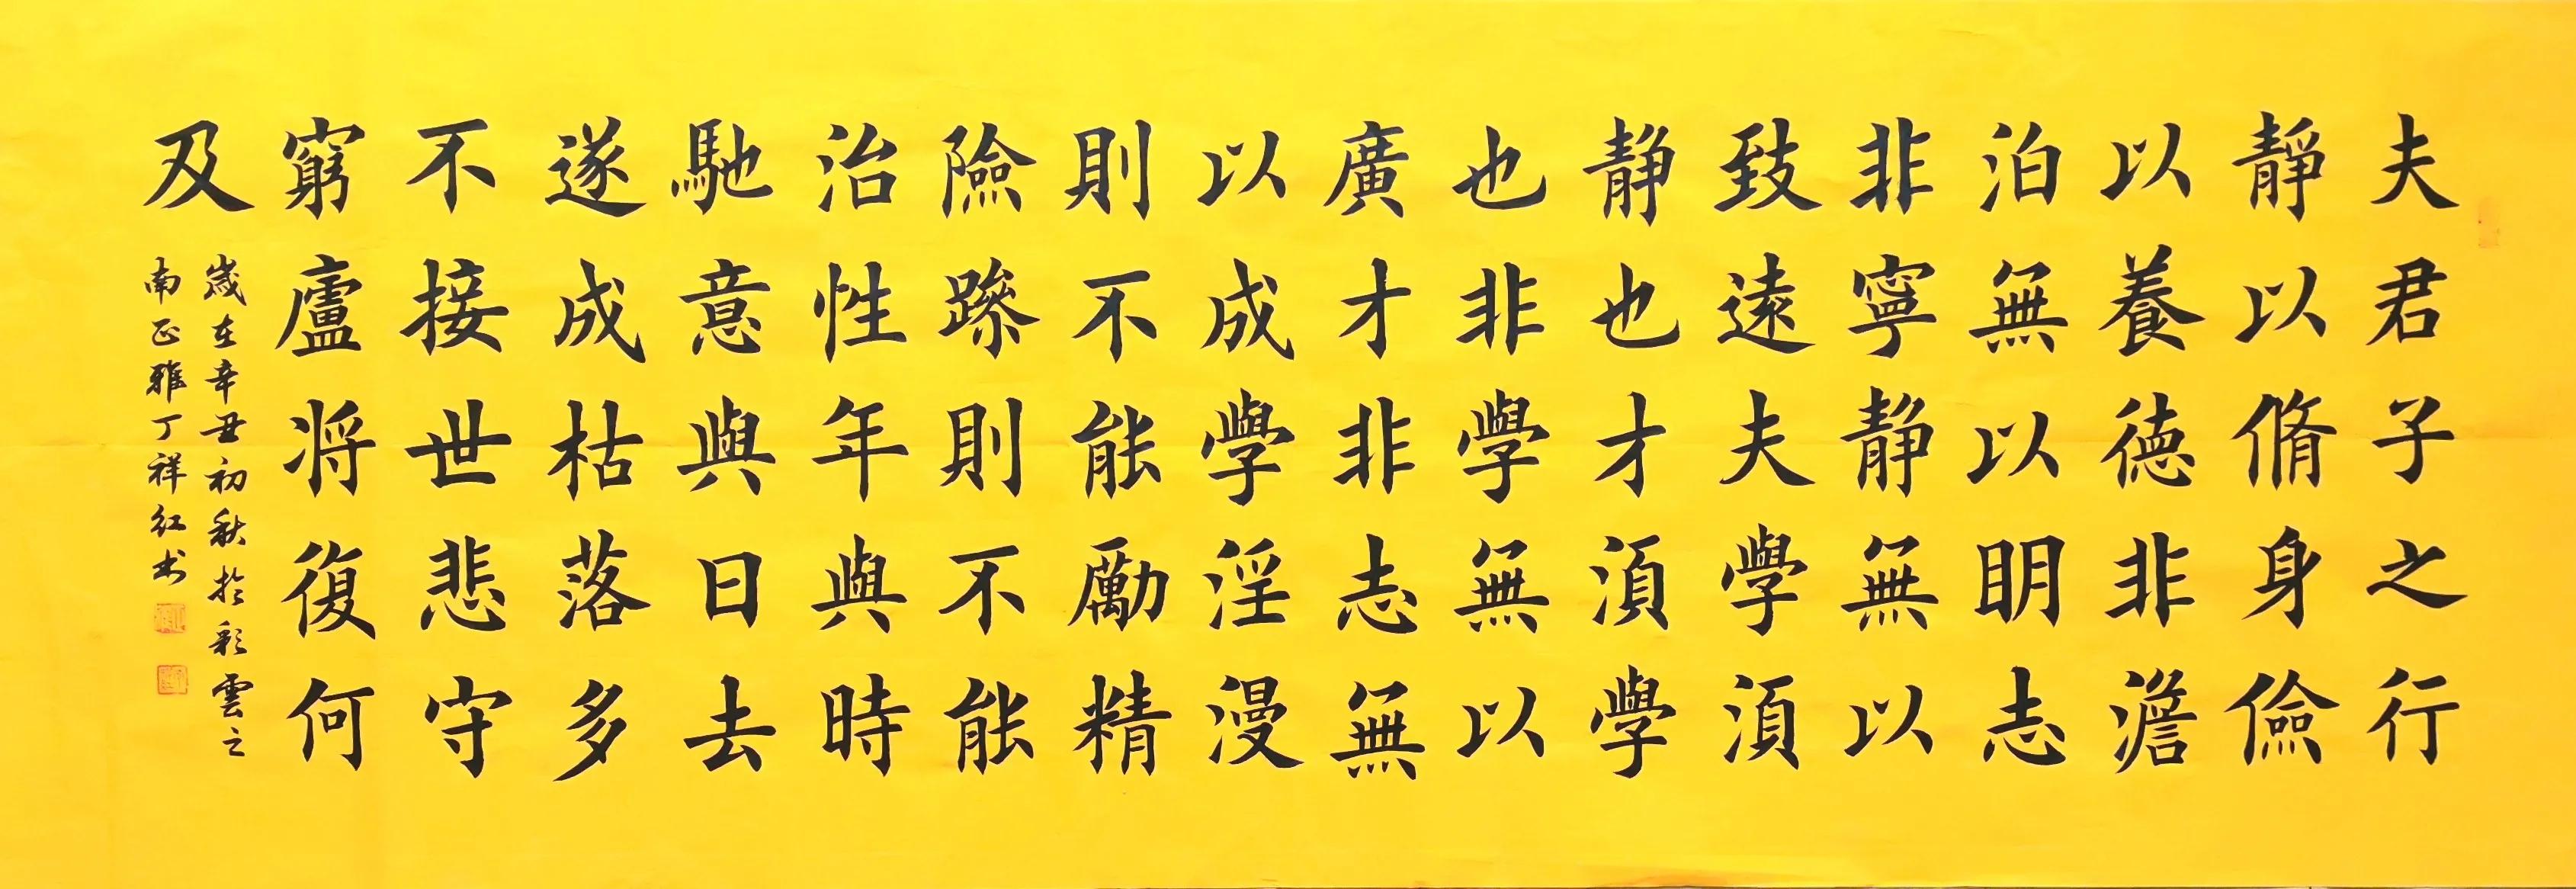 夫君子之行
靜以脩身儉
以養德非澹
泊無以明志
非寧静無以
致遠夫學須
静也才須學
也非學無以
廣才非志無
以成學淫漫
則不能勵精
險躁則不能
治性年與時
馳意與日去
遂成枯落多
不接世悲守
窮廬将復何
及
歲在辛丑初秋於彩雲之
南正雅丁祥红书